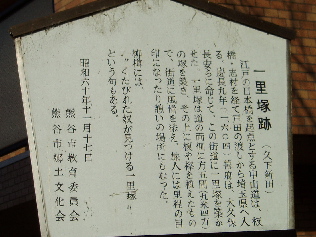 一里塚跡（久下新田）
江戸の日本橋を起点とする中山道は、板
橋・志村を経て戸田の渡しから埼玉県へ入
る。慶長九年（一六〇四）幕府は、大久保
長安らに命じて、この街道に一里塚を築か
せた。一里塚は道の両側に方五間
の塚を築き、その上に榎や杉を植えたもの
で、街道に風情を添え、旅人には里程の目
印になったり憩いの場所にもなった。
俳壇には、
くたびれた奴が見つける一里塚
という句もある。
昭和六十年十一月十七日
熊谷市教育委員会
熊谷市郷土文化会